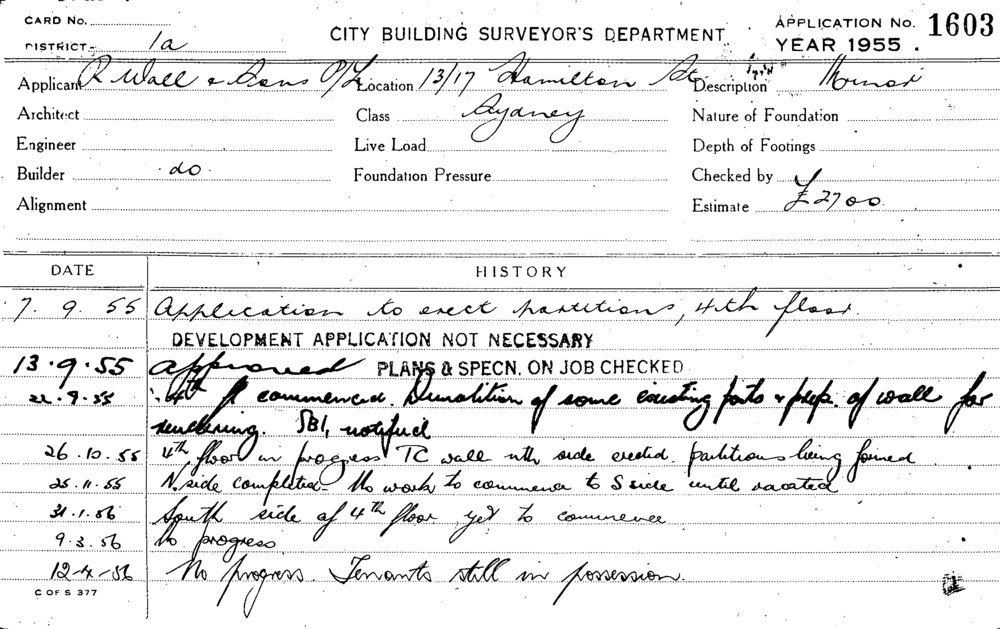 CARD No.
DISTRICT- 1a
CITY BUILDING SURVEYOR'S DEPARTMENT
APPLICATION No. 1603
YEAR 1955.
Applicant R Wall & Sons P/L Location 13/17 Hamilton St Description Minor
Architect Class Sydney Nature of Foundation
Engineer Live Load Depth of Footings
Builder do. Foundation Pressure Checked by
Alignment Estimate £2700
DATE HISTORY
7. 9. 55 Application to erect partitions, 4th floor.
DEVELOPMENT APPLICATION NOT NECESSARY
13.9.55 approved PLANS & SPECN. ON JOB CHECKED
22.9.55 4th fl commenced. Demolition of some existing parts & prep. of wall for
rendering. SBI, notified
26.10.55 4th floor in progress TC wall nth side erected. partitions being formed
25.11.55 N. side completed - No work to commence to S side until vacated
31.1.56 South side of 4th floor yet to commence
9.3.56 No progress
12-4-56 No progress. Tenants still in possession.
C OF S 377